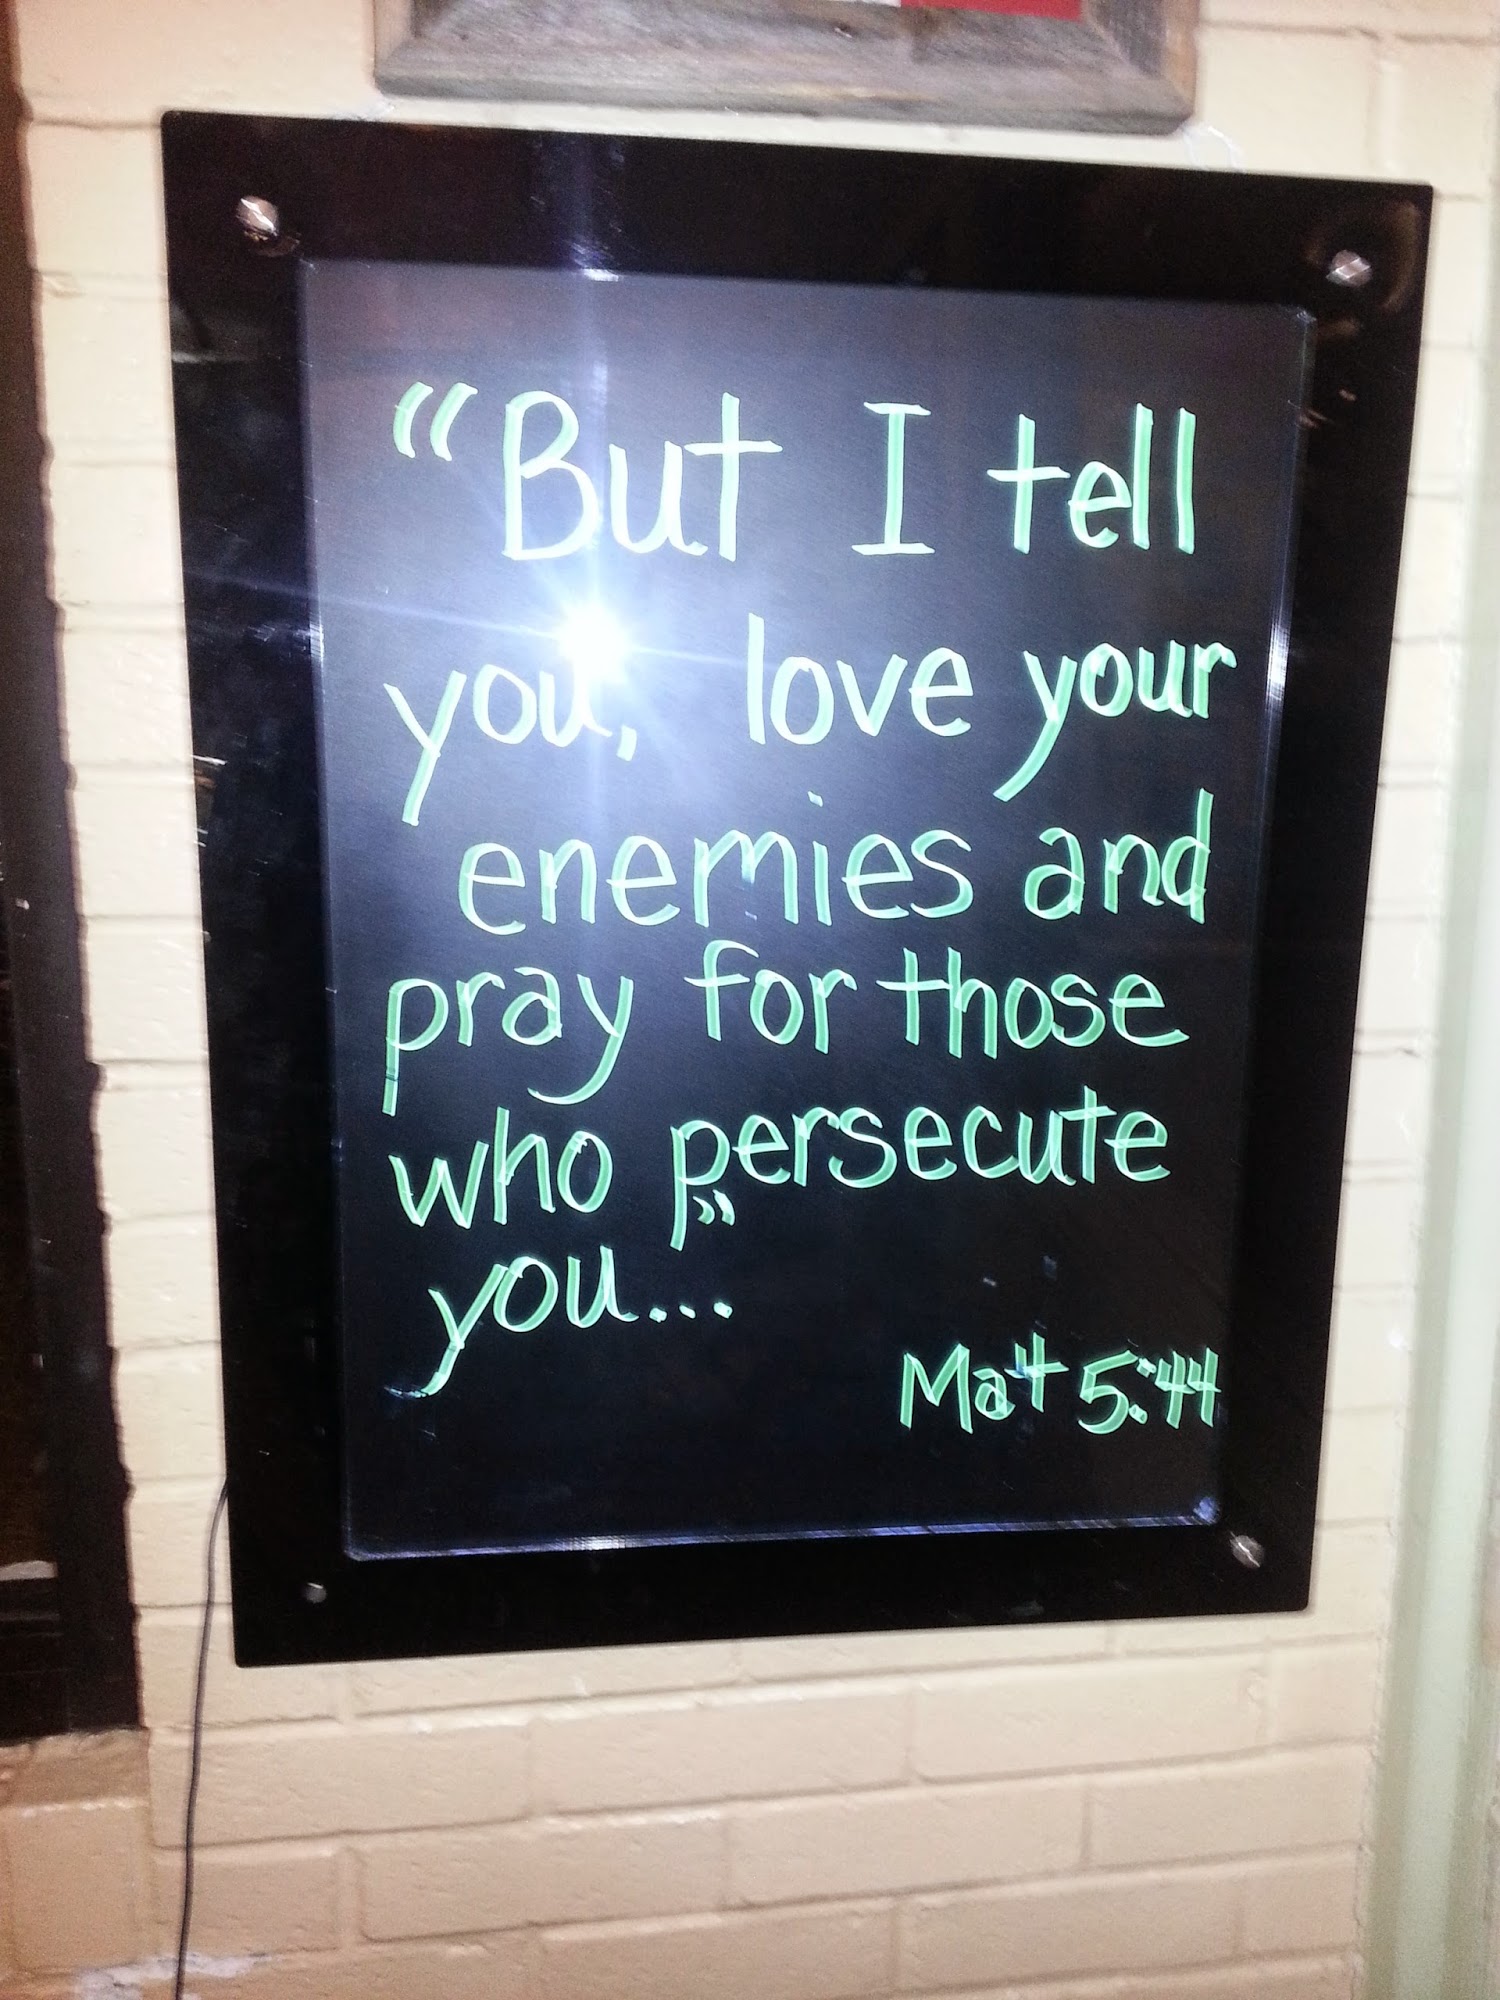 “But I tell
you, love your
enemies and
pray for those
who persecute
you...”
Matt 5:44